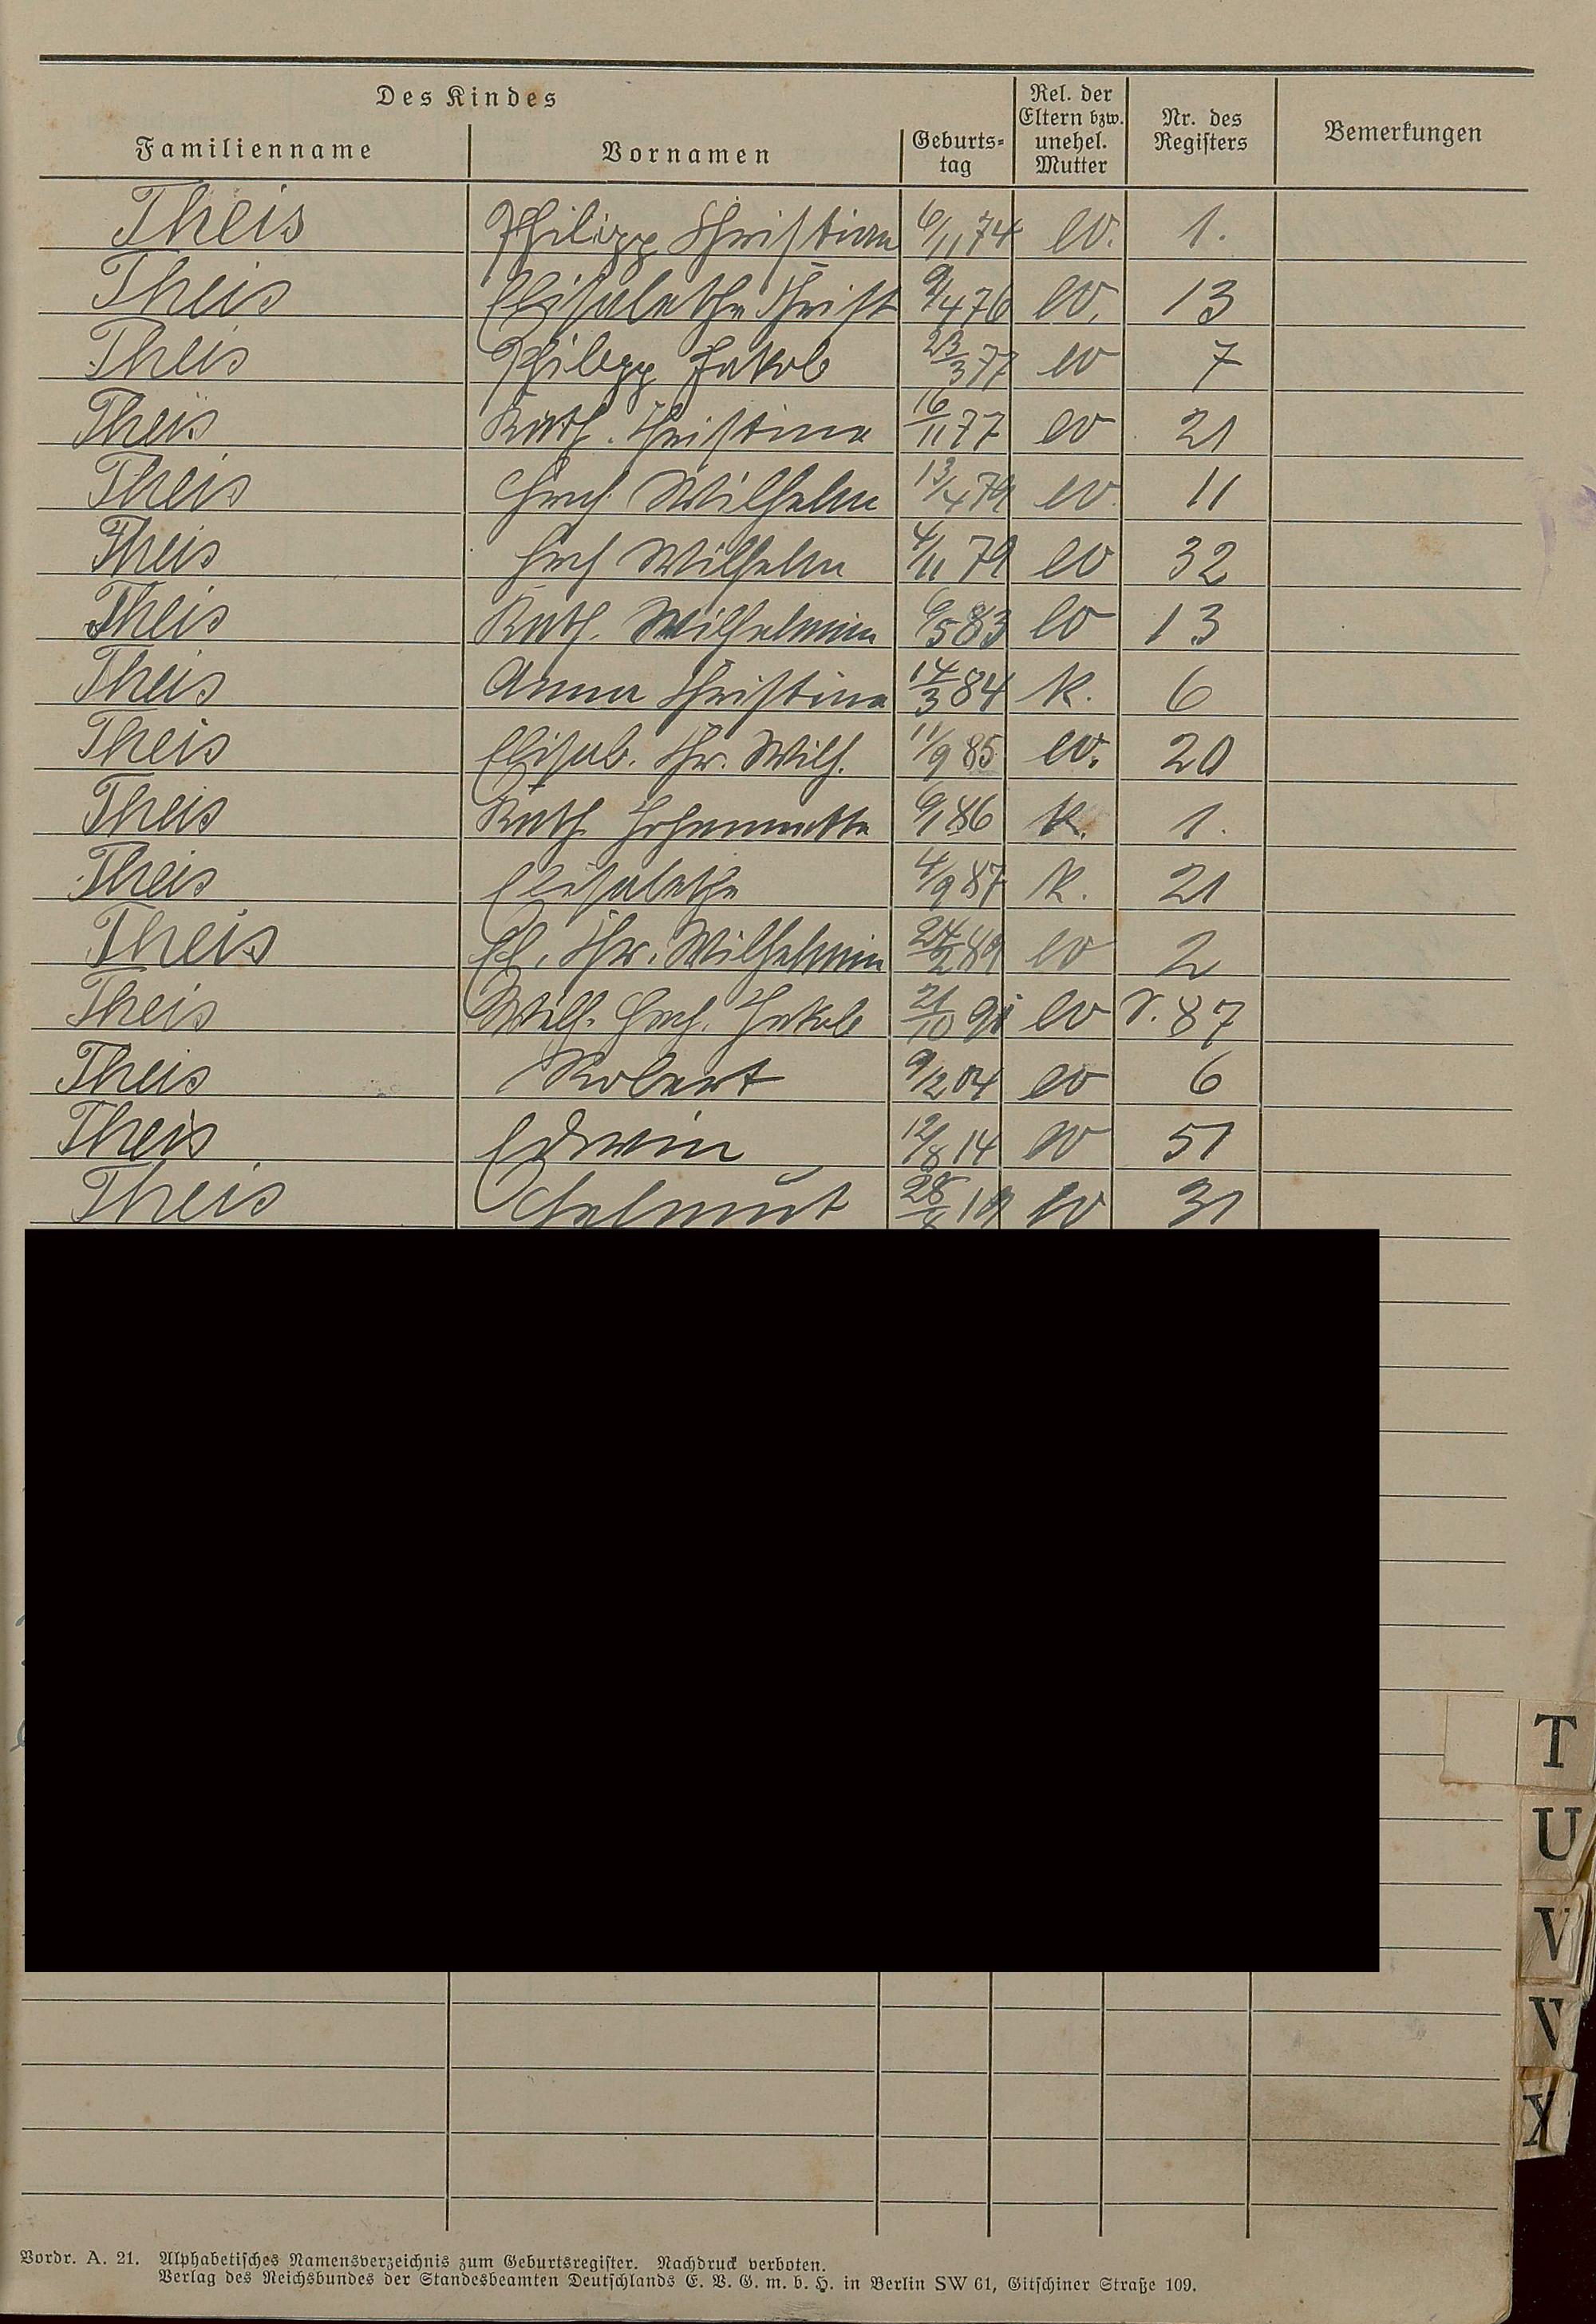 Des Kindes
Familienname Vornamen Geburts- tag Rel. der Eltern bzw. unehel. Mutter Nr. des Registers Bemerkungen
Theis Philipp Christian 6/11 74 ev. 1.
Theis Elisabethe Christ 9/4 76 ev. 13
Theis Philipp Jakob 23/3 77 ev 7
Theis Kath. Christina 16/11 77 ev 21
Theis Hrch. Wilhelm 13/4 79 ev. 11
Theis Hrch Wilhelm 4/11 79 ev 32
Theis Kath. Wilhelmine 6/5 83 ev 13
Theis Anna Christina 14/3 84 k. 6
Theis Elisab. Chr. Wilh. 11/9 85 ev. 20
Theis Kath. Johannette 6/1 86 k. 1.
Theis Elisabethe 4/9 87 k. 21
Theis El. Chr. Wilhelmin 24/2 89 ev 2
Theis Wilh. Hrch. Jakob 21/10 ev 87
Theis Robert 9/2 04 ev 6
Theis Edwin 12/8 14 ev 51
Theis Helmut 19 ev 31
T
U
V
X
Vordr. A. 21. Alphabetisches Namensverzeichnis zum Geburtsregister. Nachdruck verboten.
Verlag des Reichsbundes der Standesbeamten Deutschlands E. V. G. m. b. H. in Berlin SW 61, Gitschiner Straße 109.